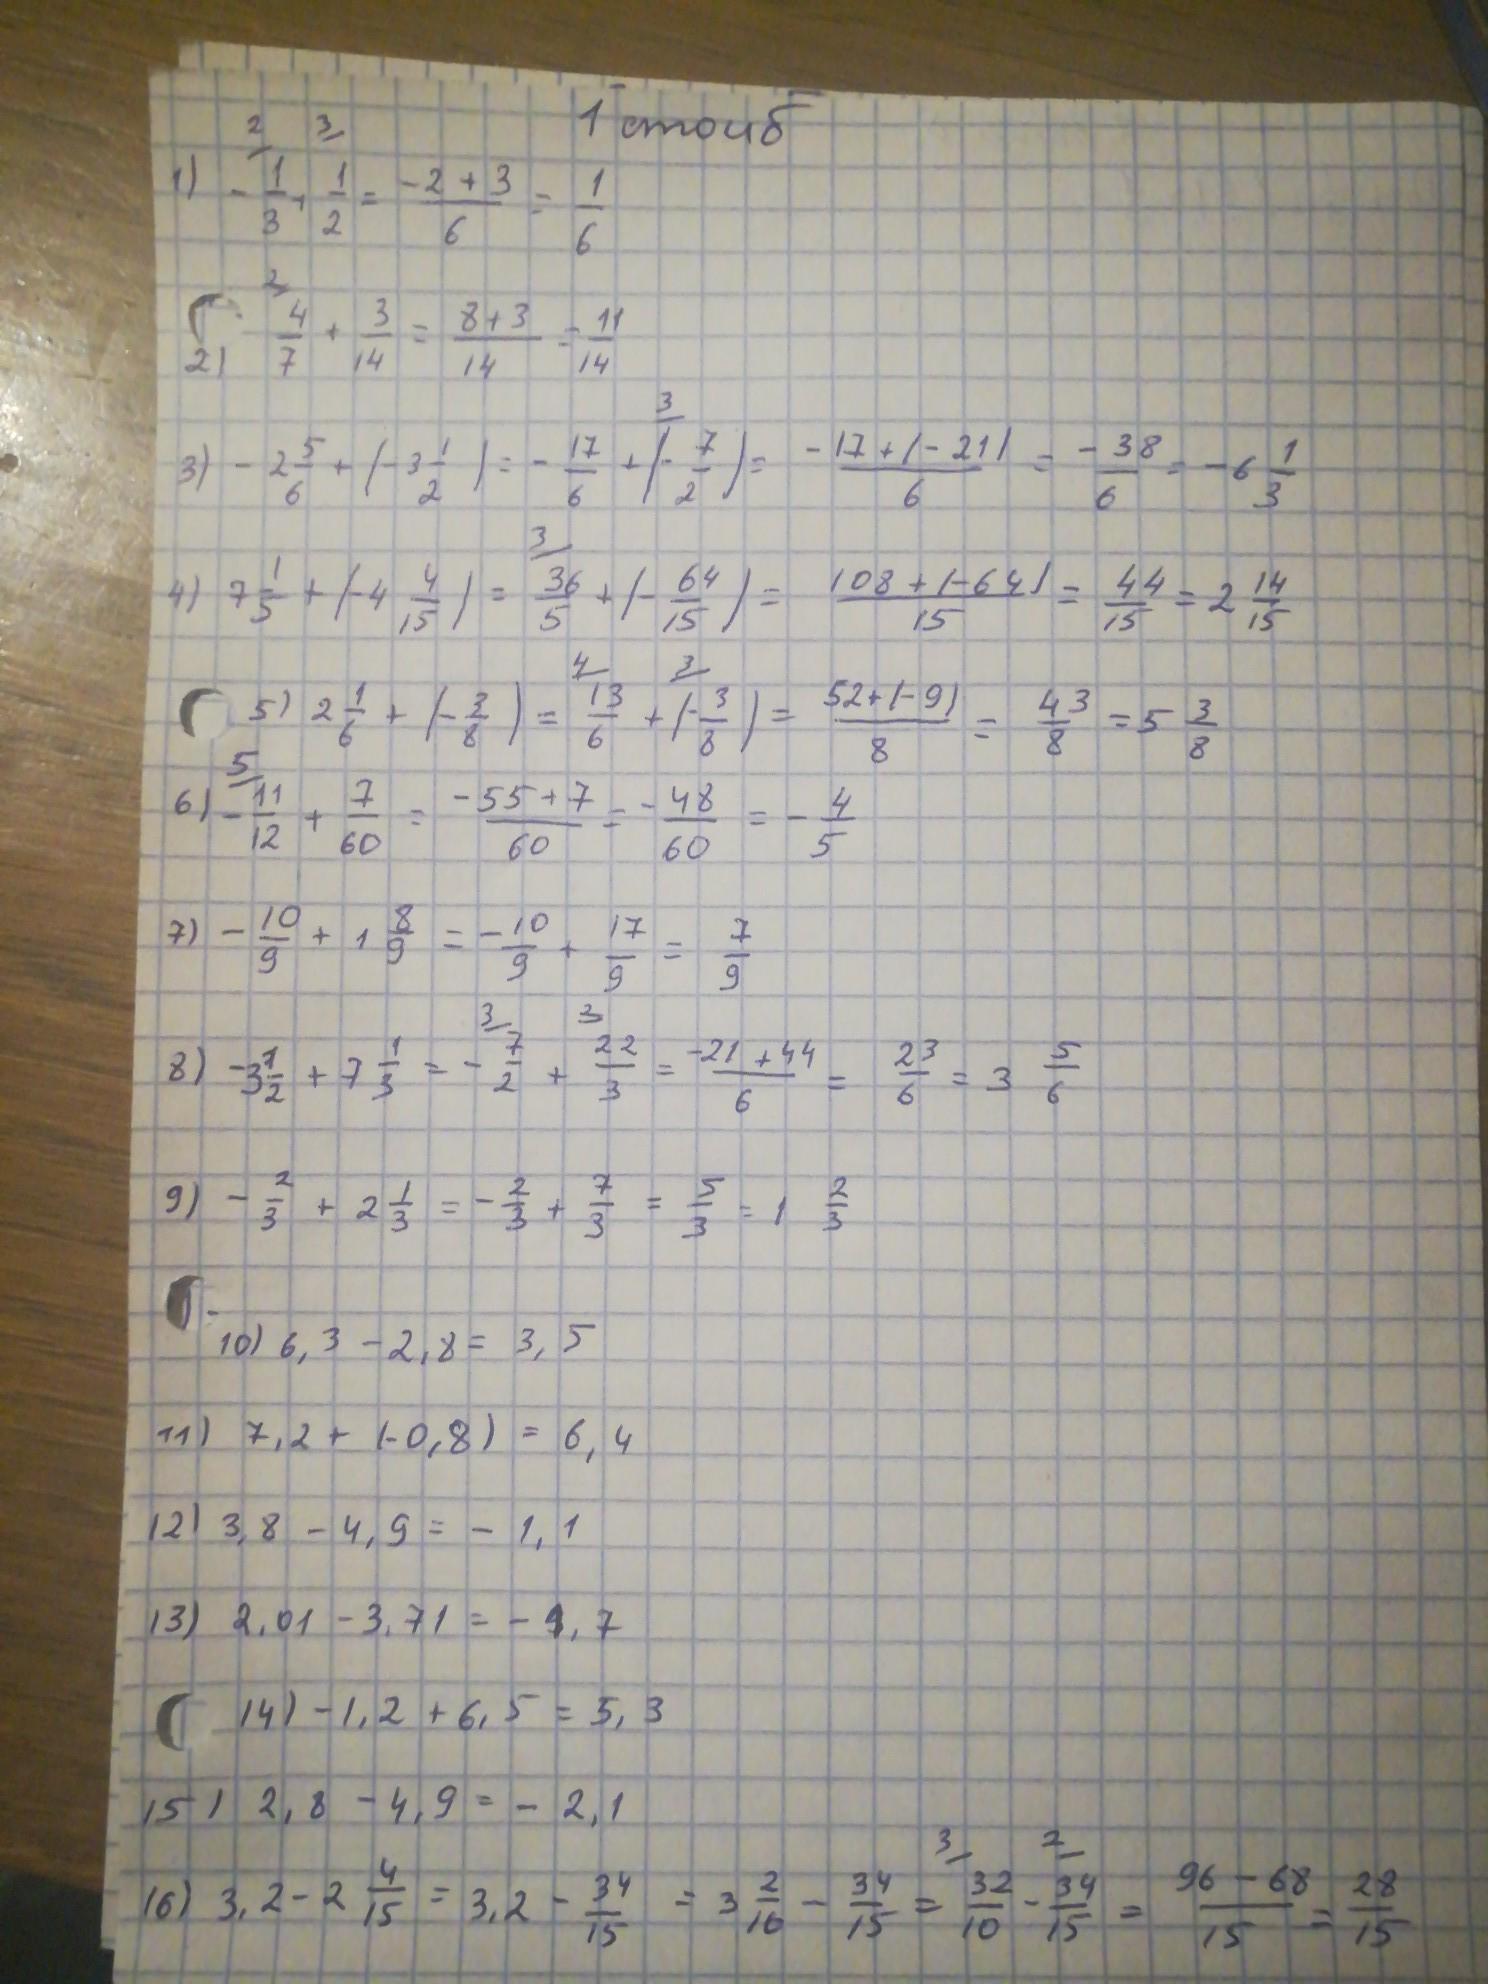 1 столб
1) - 1/3 + 1/2 = (-2 + 3)/6 = 1/6
2) - 4/7 + 3/14 = (8+3)/14 = 11/14
3) - 2 5/6 + (-3 1/2) = - 17/6 + (- 7/2) = (-17 + (-21))/6 = -38/6 = -6 1/3
4) 7 1/5 + (-4 4/15) = 36/5 + (- 64/15) = (108 + (-64))/15 = 44/15 = 2 14/15
5) 2 1/6 + (- 3/8) = 13/6 + (- 3/8) = (52+(-9))/8 = 43/8 = 5 3/8
6) - 11/12 + 7/60 = (-55 + 7)/60 = - 48/60 = - 4/5
7) - 10/9 + 1 8/9 = - 10/9 + 17/9 = 7/9
8) -3 1/2 + 7 1/3 = - 7/2 + 22/3 = (-21 + 44)/6 = 23/6 = 3 5/6
9) - 2/3 + 2 1/3 = - 2/3 + 7/3 = 5/3 = 1 2/3
10) 6,3 - 2,8 = 3,5
11) 7,2 + (-0,8) = 6,4
12) 3,8 - 4,9 = - 1,1
13) 2,01 - 3,71 = - 1,7
14) -1,2 + 6,5 = 5,3
15) 2,8 - 4,9 = - 2,1
16) 3,2 - 2 4/15 = 3,2 - 34/15 = 3 2/10 - 34/15 = 32/10 - 34/15 = (96 - 68)/15 = 28/15